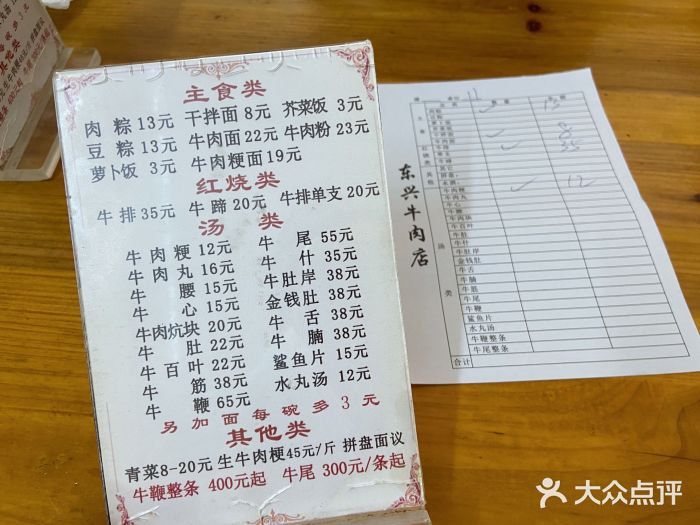 主食类
肉粽13元 干拌面8元 芥菜饭3元
豆粽13元 牛肉面22元 牛肉粉23元
萝卜饭3元 牛肉粳面19元
红烧类
牛排35元 牛蹄20元 牛排单支20元
汤类
牛肉粳12元 牛尾55元
牛肉丸16元 牛什35元
牛腰15元 牛肚岸38元
牛心15元 金钱肚38元
牛肉炕块20元 牛舌38元
牛肚22元 牛腩38元
牛百叶22元 鲨鱼片15元
牛筋38元 水丸汤12元
牛鞭65元
另加面每碗多3元
其他类
青菜8-20元 生牛肉梗45元/斤 拼盘面议
牛鞭整条 400元起 牛尾 300元/条起
东兴牛肉店
11
13
8
35
12
主食
红烧类
其他
汤类
牛心
牛腰
牛肉块
牛百叶
牛肚
牛什
牛肚岸
金钱肚
牛舌
牛腩
牛筋
牛尾
牛鞭
鲨鱼片
水丸汤
牛鞭整条
牛尾整条
合计
大众点评